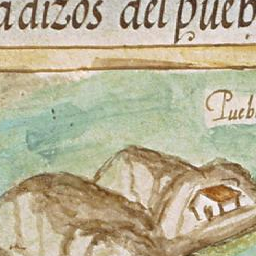 adizos del pueb
Pueb